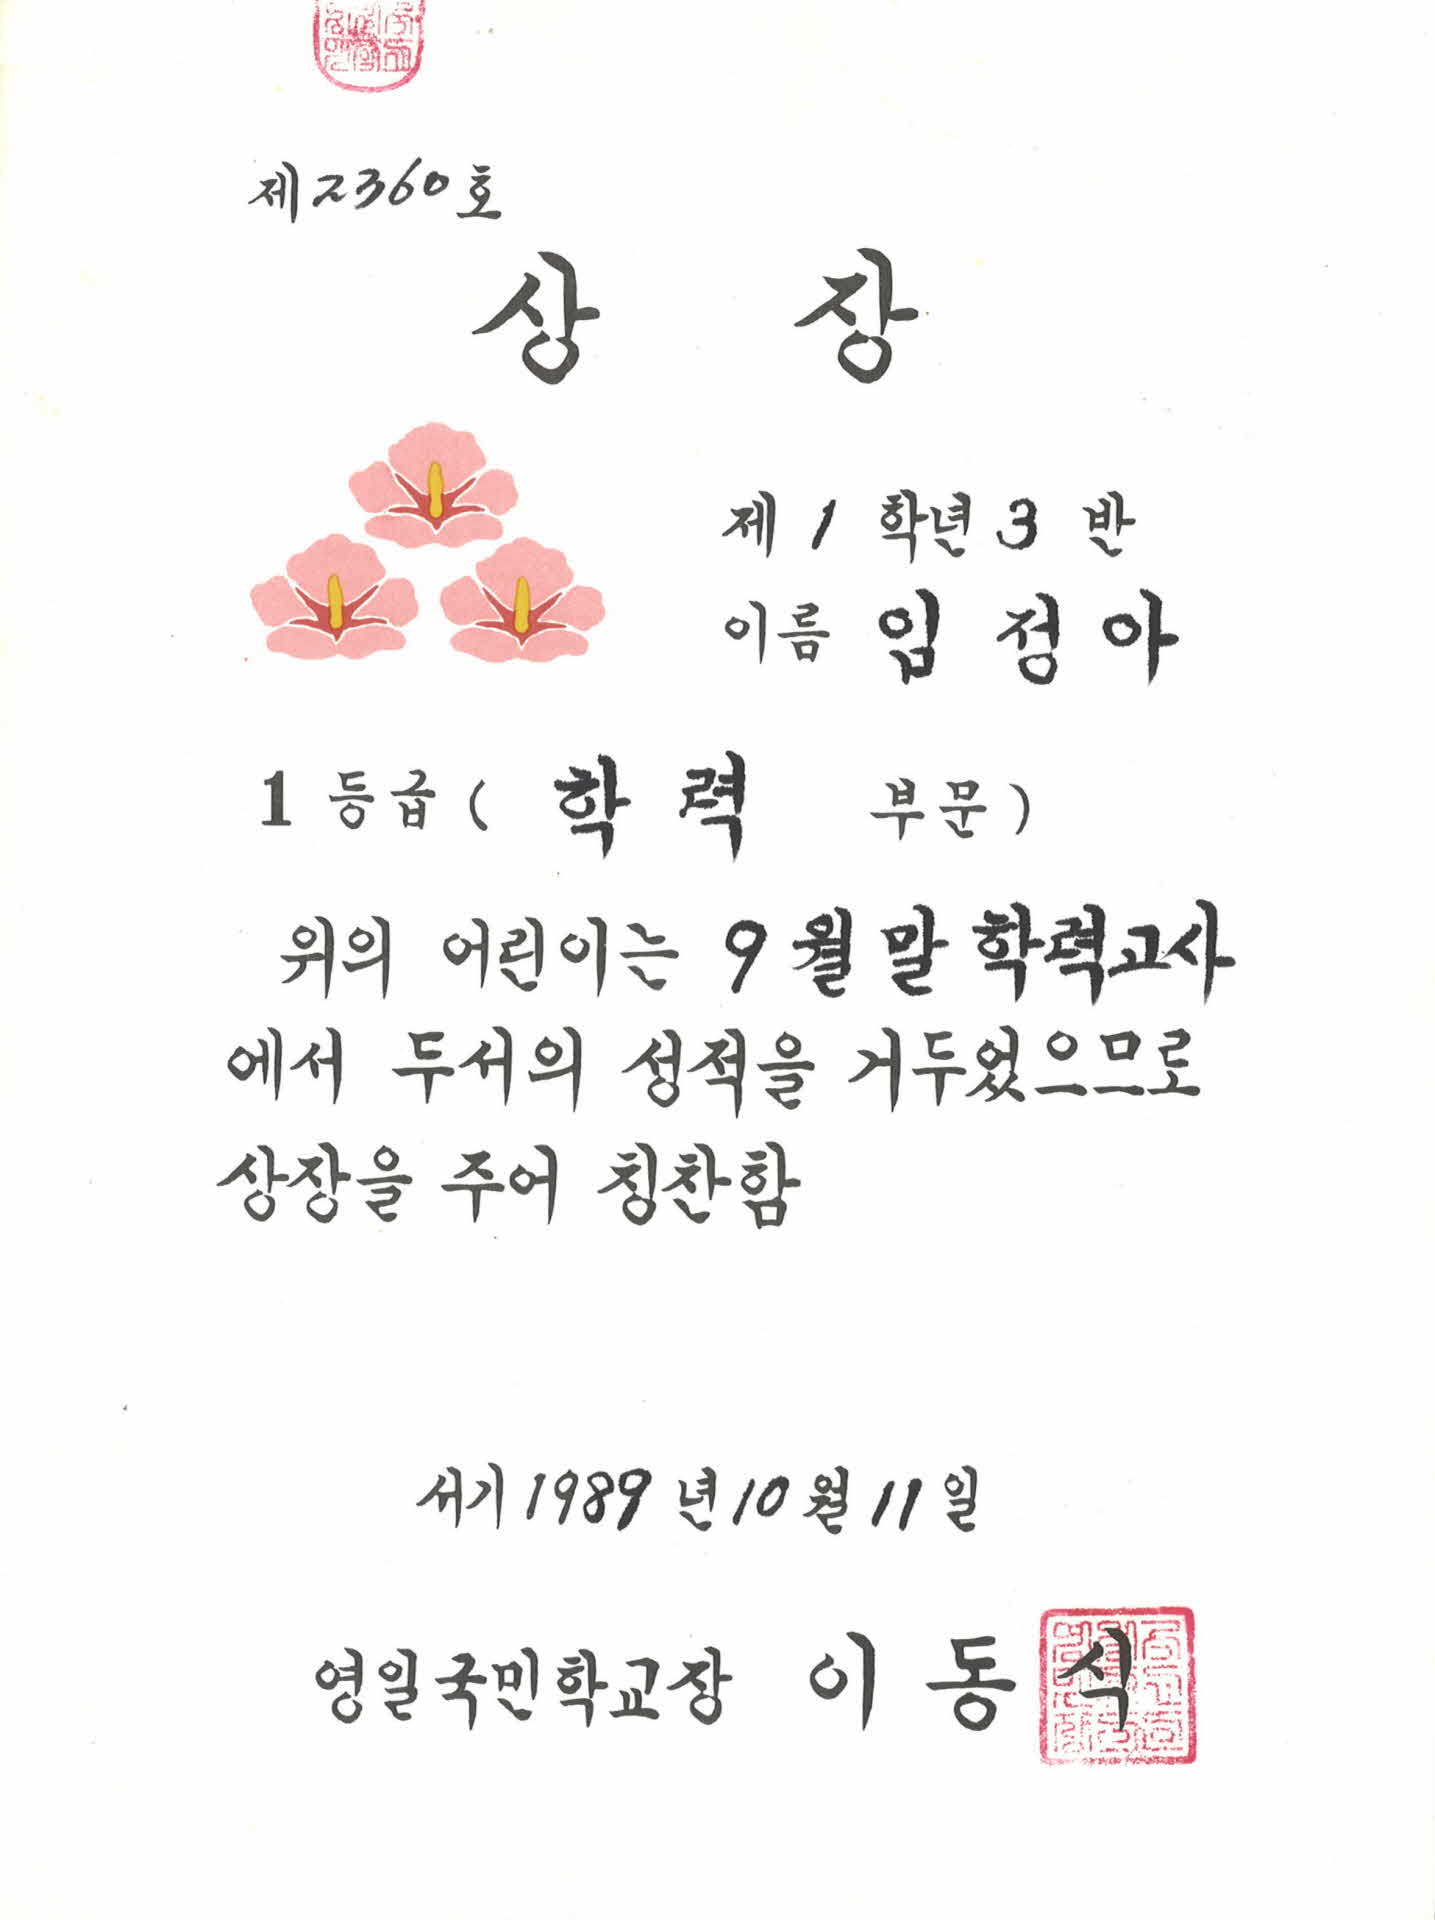 제2360호
상 장
제 1 학년 3 반
이름 임 정 아
1 등급( 학 력 부문)
위의 어린이는 9월 말 학력고사
에서 두서의 성적을 거두었으므로
상장을 주어 칭찬함
서기 1989 년 10 월 11 일
영일국민학교장 이 동 식